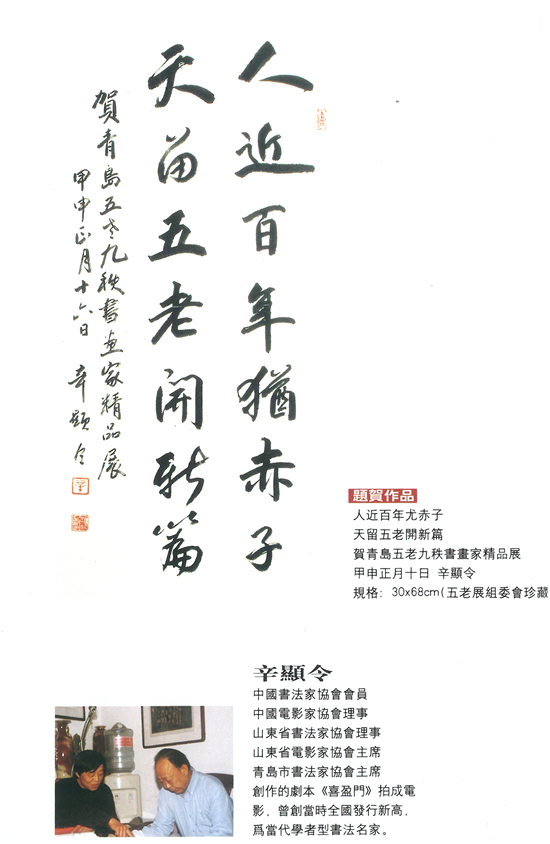 人近百年猶赤子
天留五老開新篇
賀青島五老九秩書畫家精品展
甲申正月十六日 辛顯令
題賀作品
人近百年尤赤子
天留五老開新篇
賀青島五老九秩書畫家精品展
甲申正月十日 辛顯令
規格：30x68cm(五老展組委會珍藏
辛顯令
中國書法家協會會員
中國電影家協會理事
山東省書法家協會理事
山東省電影家協會主席
青島市書法家協會主席
創作的劇本《喜盈門》拍成電
影，曾創當時全國發行新高，
爲當代學者型書法名家。